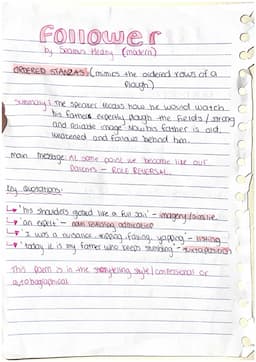 Follower
by Seamus Heany (modern)
ORDERED STANZAS (mimics the ordered rows of a
plough.)
Summary: The speaker recalls how he would watch
his father expertly plough the fields / strong
and reliable image. Now his father is old,
weakened and follows behind him.
Main message: At some point we become like our
parents - ROLE REVERSAL.
Key quotations:
'his shoulders globed like a full sail' - imagery/simile
'an expert' - noun revealing admiration
'I was a nuisance, tripping, falling, yapping' - listing
'today it is my father who keeps stumbling' - juxtaposition
This poem is in the storytelling style / confessional or
autobiographical